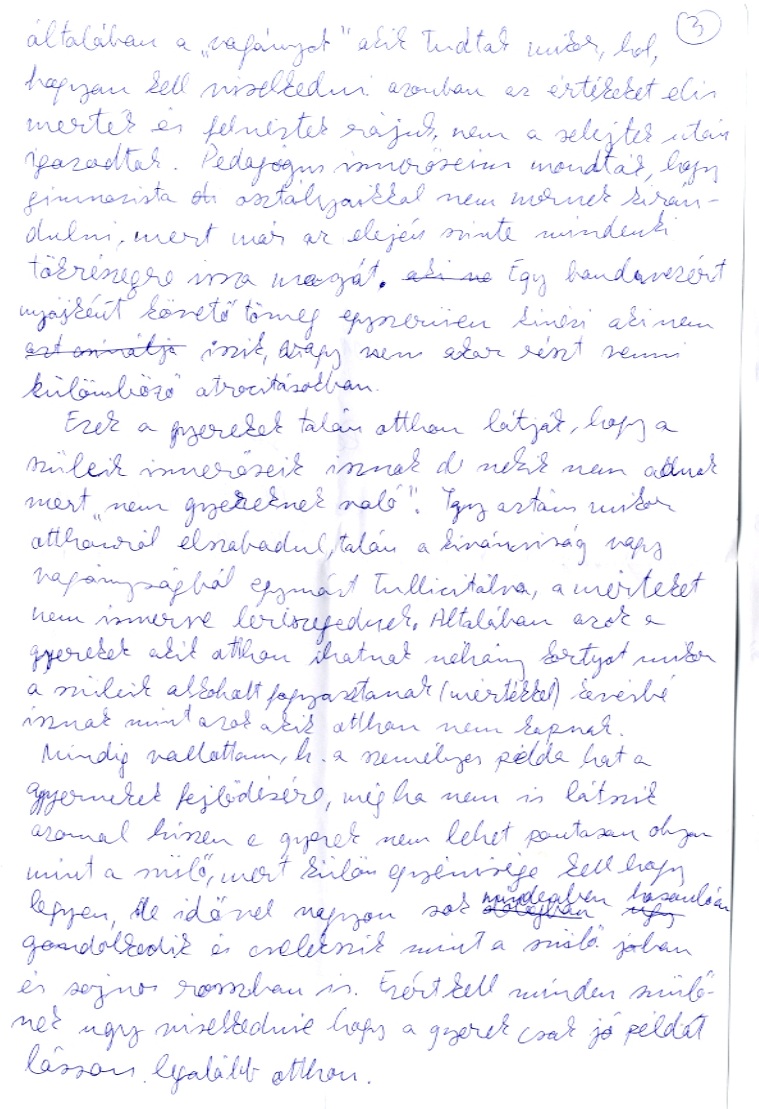 3
általában a „vagányok" akik tudták mikor, hol,
hogyan kell viselkedni azonban az értékeket elis
merték és felnéztek rájuk, nem a selejtek után
igazodtak. Pedagógus ismerőseim mondták, hogy
gimnazista osztályaikkal nem mernek kirán-
dulni, mert már az elején szinte mindenki
tökrészegre issza magát. aki ne Egy bandavezért
nyájként követő tömeg egyszerűen kinézi aki nem
azt csinálja iszik, avagy nem akar részt venni
külömböző atrocitásokban.
Ezek a gyerekek talán otthon látják, hogy a
szüleik ismerőseik isznak de nekik nem adnak
mert „nem gyereknek való". Igy aztán mikor
otthonról elszabadul, talán a kiváncsiság vagy
vagányságból egymást túllicitálva, a mértéket
nem ismerve lerészegednek. Általában azok a
gyerekek akik otthon ihatnak néhány kortyot mikor
a szüleik alkoholt fogyasztanak (mértékkel) kevésbé
isznak mint azok akik otthon nem kapnak.
Mindig vallottam, h. a személyes példa hat a
gyermekek fejlődésére, még ha nem is látszik
azonnal hiszen a gyerek nem lehet pontosan olyan
mint a szülő, mert külön egyénisége kell hogy
legyen, de idővel nagyon sok dologban úgy mindenben hasonlóan
gondolkodik és cselekszik mint a szülő jóban
és sajnos rosszban is. Ezért kell minden szülő-
nek ugy viselkednie hogy a gyerek csak jó példát
lásson legalább otthon.